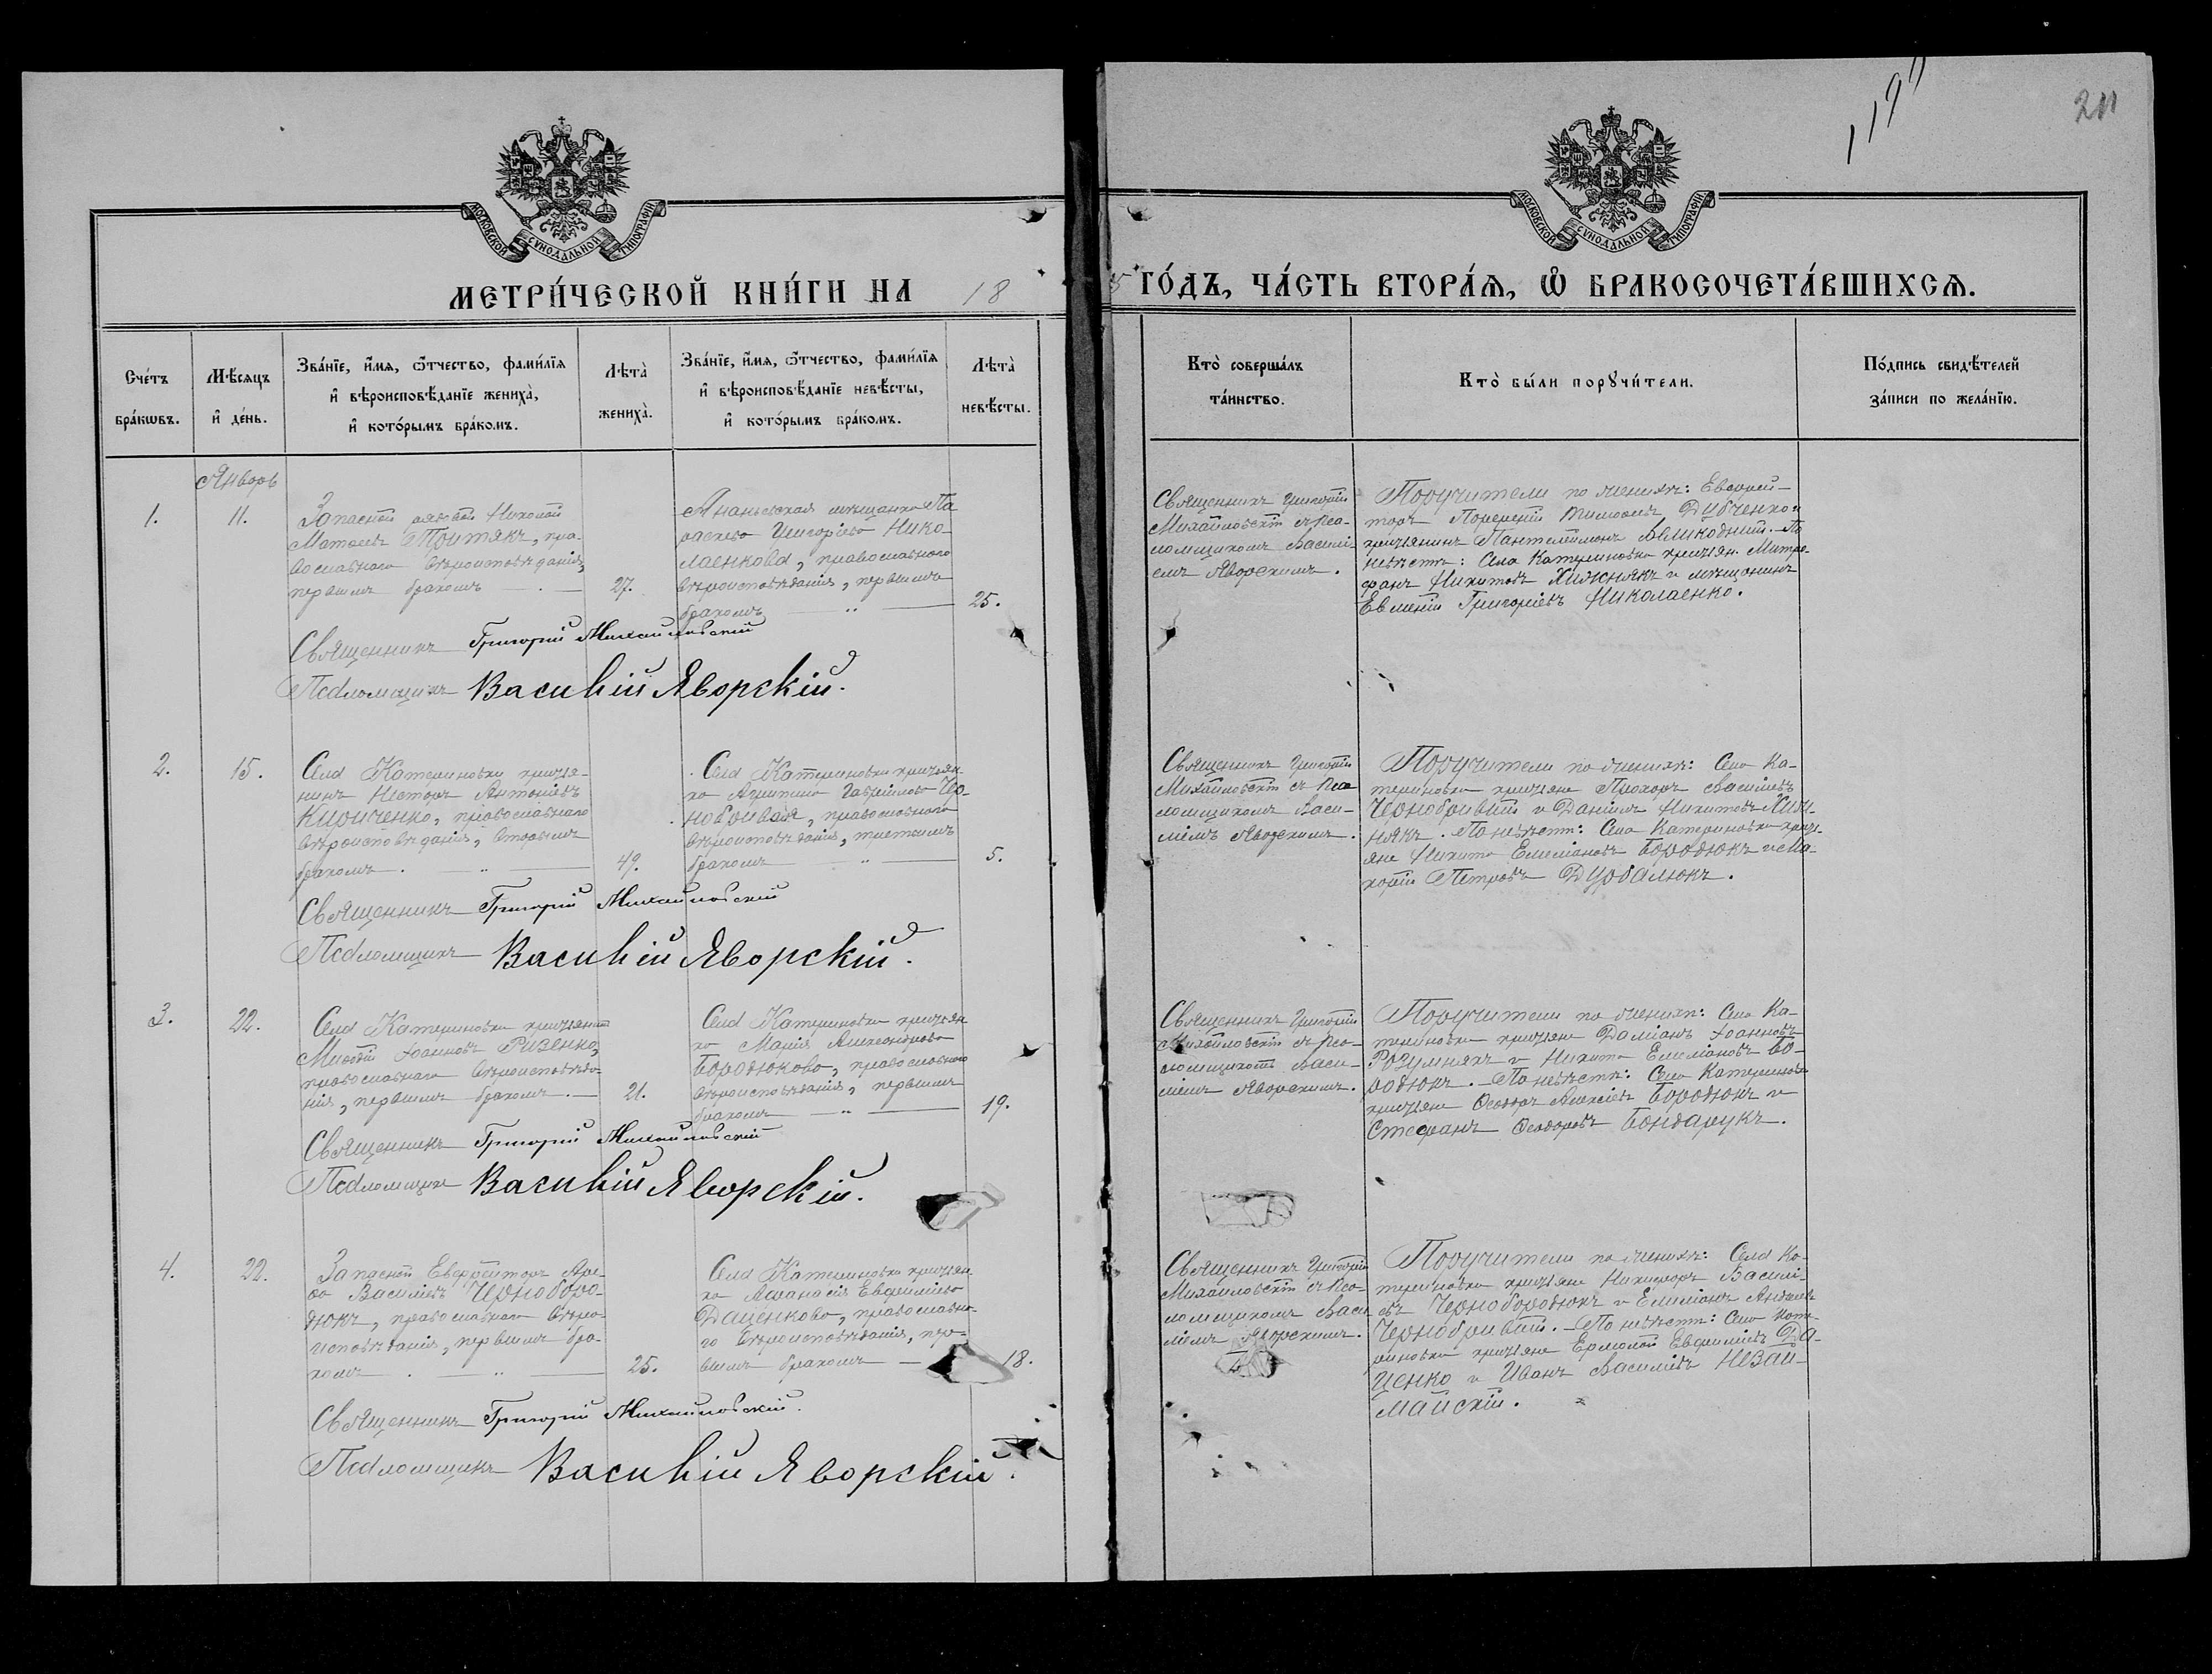 119
211
МОСКОВСКОЙ СѴНОДАЛЬНОЙ ТИПОГРАФІИ
МОСКОВСКОЙ СѴНОДАЛЬНОЙ ТИПОГРАФІИ
МЕТРИ́ЧЕСКОЙ КНИ́ГИ НА 18
5 ГО́ДЪ, ЧА́СТЬ ВТОРА́Ѧ, Ѽ БРАКОСОЧЕТА́ВШИХСѦ.
Сче́тъ
бра́кѡвъ.
Мѣ́сѧцъ
и҆ де́нь.
Зва́нїе, и҆́мѧ, ѻ҆́тчество, фами́лїѧ
и҆ вѣроисповѣ́данїе жениха̀,
и҆ кото́рымъ бра́комъ.
Лѣта̀
жениха̀.
Зва́нїе, и҆́мѧ, ѻ҆́тчество, фами́лїѧ
и҆ вѣроисповѣ́данїе невѣ́сты,
и҆ кото́рымъ бра́комъ.
Лѣта̀
невѣ́сты.
Кто̀ соверша́лъ
та́инство.
Кто̀ бы́ли порꙋчи́тели.
По́дпись свидѣ́телей
за́писи по жела́нїю.
Январь
1.
11.
Запасной рядовой Николай
Матѳеевъ Притякъ, пра-
вославнаго вѣроисповѣданія,
первымъ бракомъ
27.
Ананьевская мѣщанка Па
раскева Григоріева Нико-
лаенкова, православнаго
вѣроисповѣданія, первымъ
бракомъ
25.
Священникъ Григорій
Михайловскій съ Пса-
ломщикомъ Васелі-
емъ Яворскимъ.
Поручители по женихѣ: Ефрей-
торъ Тимоѳеевъ Дубченко и
крестьянинъ Пантелеймонъ Великодний. По
невѣстѣ: Села Катериновки крестьян. Митро-
фанъ Никитовъ Хижнякъ и мѣщанинъ
Евменій Григоріевъ Николаенко.
Священникъ Григорій Михайловскій
Псаломщикъ Василій Яворскій.
2.
15.
Села Катериновки крестья-
нинъ Несторъ Антоніевъ
Кириченко, православнаго
вѣроисповѣданія, вторымъ
бракомъ.
49.
Села Катериновки крестьян
ка Агрипина Гавріилова Чер-
нобривая, православнаго
вѣроисповѣданія, третьимъ
бракомъ
5.
Священникъ Григорій
Михайловскій съ Пса
ломщикомъ Васи-
ліемъ Яворскимъ.
Поручители по женихѣ: Села Ка-
териновки крестьяне Прохоръ Василіевъ
Чернобривый и Даніилъ Никитовъ Хиж-
някъ. По невѣстѣ: Села Катериновки кресть-
яне Никита Емеліановъ Бородюкъ и Ма-
карій Петровъ Дурбалюкъ.
Священникъ Григорій Михайловскій
Псаломщикъ Василій Яворскій.
3.
22.
Села Катериновки крестьянинъ
Меѳодій Іоанновъ Ризенко,
православнаго вѣроисповѣда-
нія, первымъ бракомъ.
21.
Села Катериновки крестьян
ка Марія Александрова
Бородюкова, православнаго
вѣроисповѣданія, первымъ
бракомъ
19.
Священникъ Григорій
Михайловскій съ Пса-
ломщикомъ Васи-
ліемъ Яворскимъ.
Поручители по женихѣ: Села Ка-
териновки крестьяне Даміанъ Іоанновъ
Розумнякъ и Никита Емеліановъ Бо-
родюкъ. По невѣстѣ: Села Катериновки
крестьяне Ѳеодоръ Алексіевъ Бородюкъ и
Стефанъ Ѳеодоровъ Бондарукъ.
Священникъ Григорій Михайловскій
Псаломщикъ Василій Яворскій.
4.
22.
Запасной Ефрейторъ Аре-
ѳа Василіевъ Чернoборо-
дюкъ, православнаго вѣро-
исповѣданія, первымъ бра-
комъ
25.
Села Катериновки крестьян
ка Аѳанасія Евфиміева
Даценкова, православна-
го вѣроисповѣданія, пер-
вымъ бракомъ
18.
Священникъ Григорій
Михайловскій съ Пса-
ломщикомъ Васи-
ліемъ Яворскимъ.
Поручители по женихѣ: Села Ка-
териновки крестьяне Никифоръ Василі-
евъ Чернобородюкъ и Емиліанъ Андреевъ
Чернобривый. По невѣстѣ: Села Кате-
риновки крестьяне Ермолай Евфиміевъ Да-
ценко и Иванъ Василіевъ Незай-
майскій.
Священникъ Григорій Михайловскій.
Псаломщикъ Василій Яворскій.